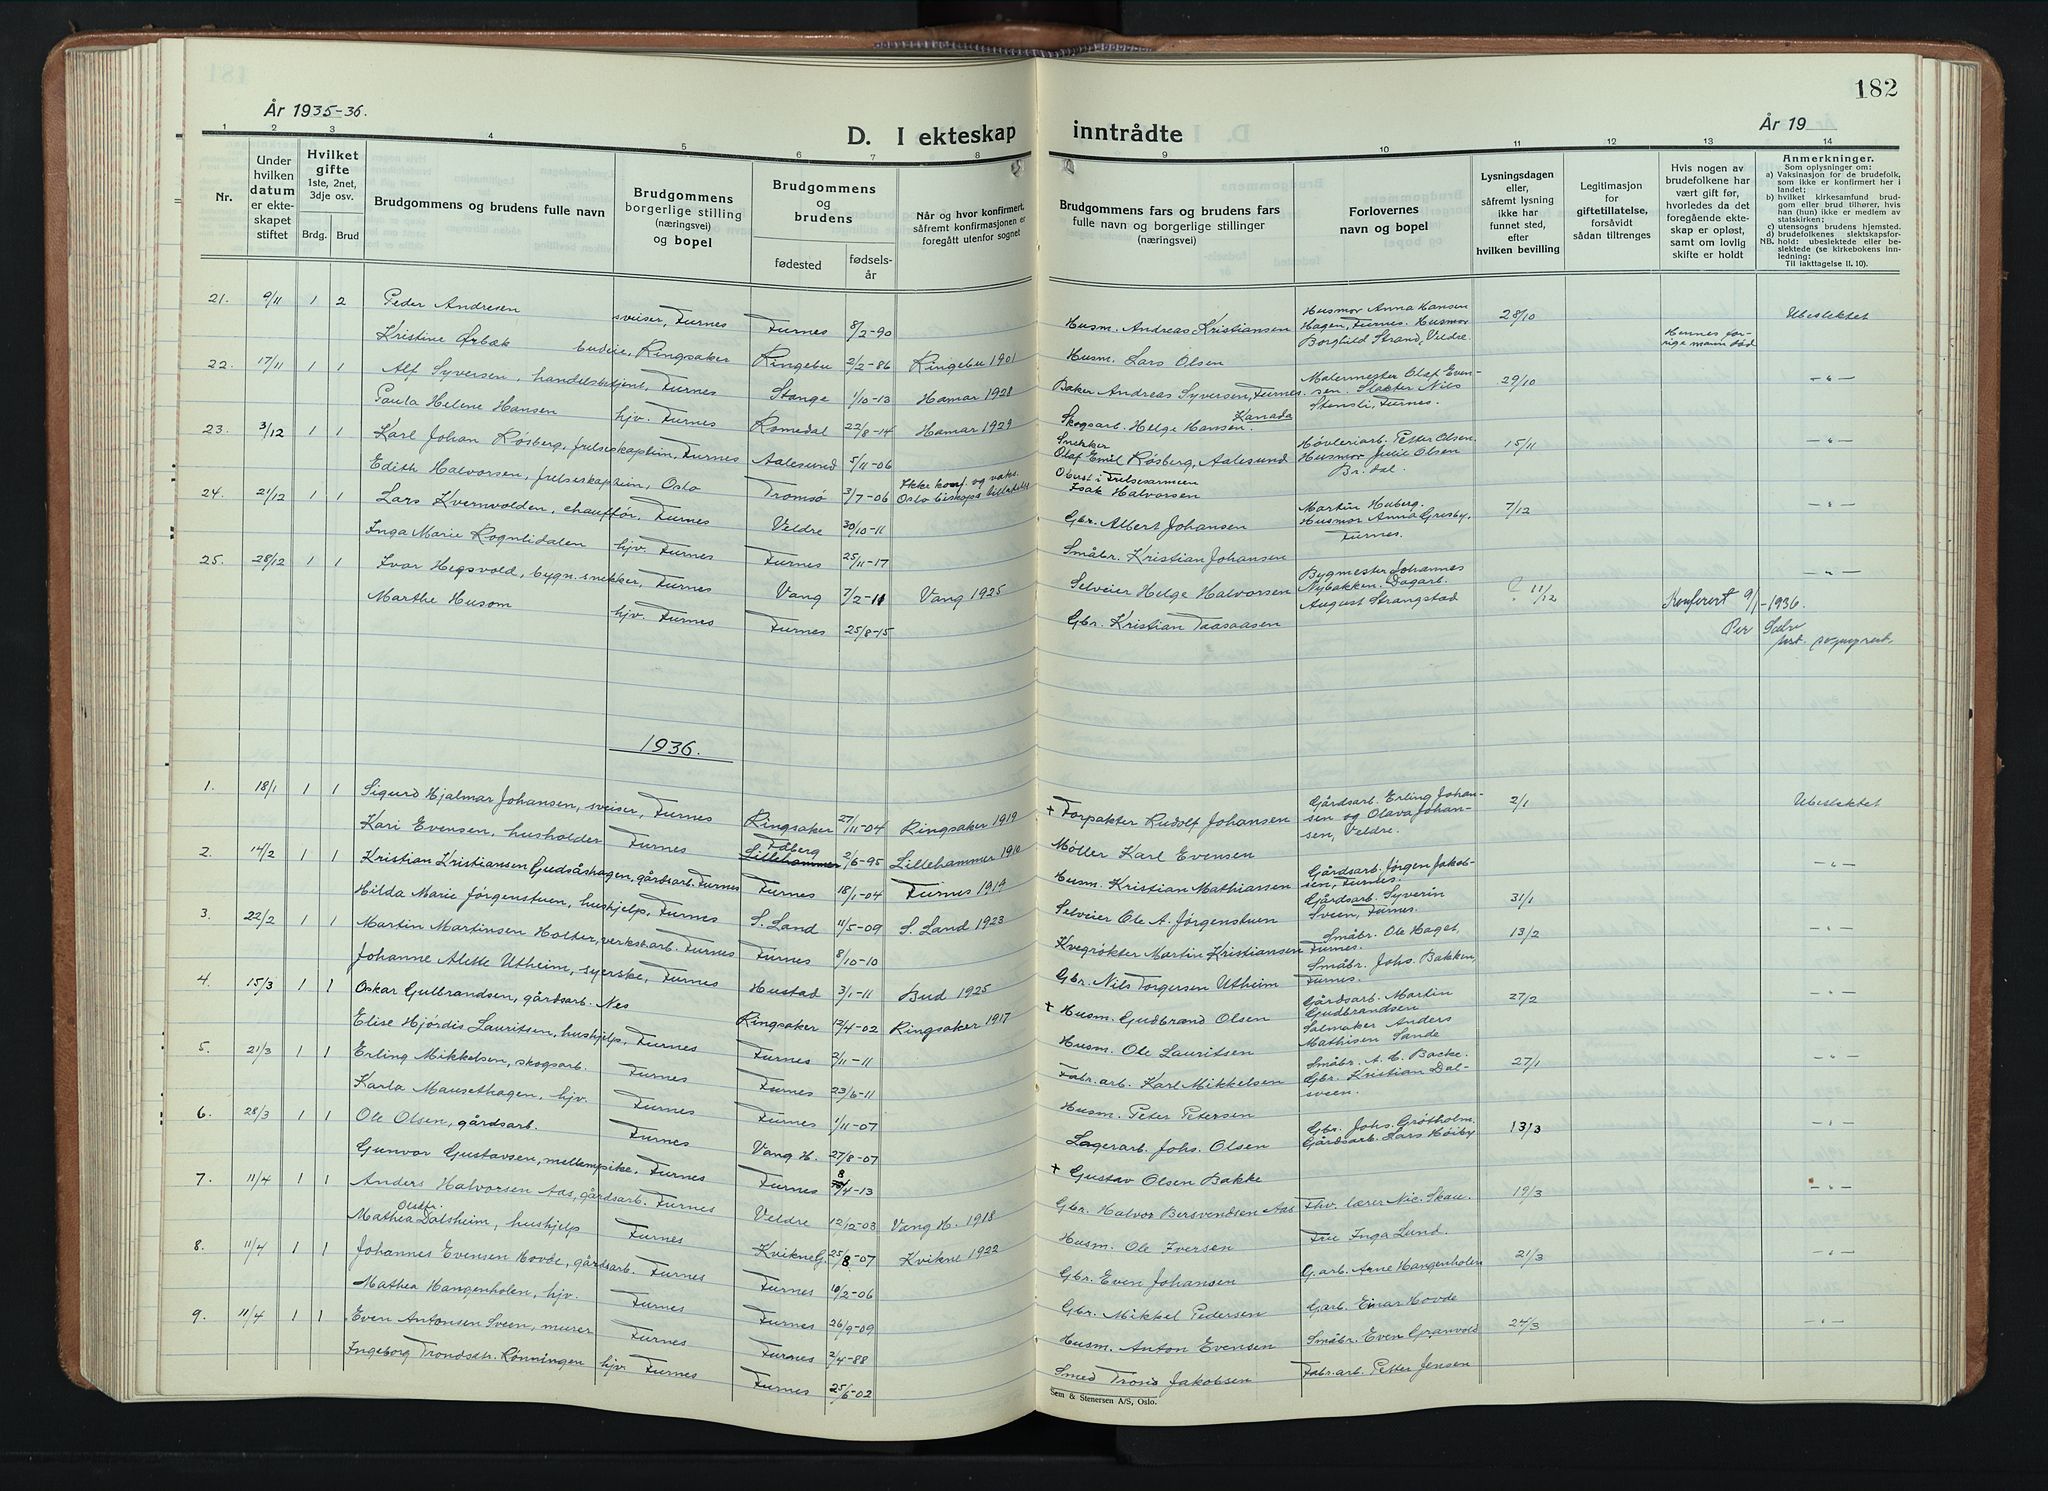 182
År 1935-36.
År 19
D. I ekteskap inntrådte
1 2 3 4 5 6 7 8 9 10 11 12 13 14
Nr.
Under hvilken datum er ekteskapet stiftet
Hvilket gifte 1ste, 2net, 3dje osv.
Brdg. Brud
Brudgommens og brudens fulle navn
Brudgommens borgerlige stilling (næringsvei) og bopel
Brudgommens og brudens
fødested
fødselsår
Når og hvor konfirmert, såfremt konfirmasjonen er foregått utenfor sognet
Brudgommens fars og brudens fars fulle navn og borgerlige stillinger (næringsvei)
Forlovernes navn og bopel
Lysningsdagen eller, såfremt lysning ikke har funnet sted, efter hvilken bevilling
Legitimasjon for giftetillatelse, forsåvidt sådan tiltrenges
Hvis nogen av brudefolkene har vært gift før, hvorledes da det foregående ekteskap er opløst, samt om lovlig skifte er holdt
Anmerkninger.
Som oplysninger om:
a) Vaksinasjon for de brudefolk, som ikke er konfirmert her i landet;
b) hvilket kirkesamfund brudgom eller brud tilhører, hvis han (hun) ikke er medlem av statskirken;
c) utensogns brudens hjemsted.
d) brudefolkenes slektskapsforhold: ubeslektede eller beslektede (se kirkebokens innledning:
NB.
Til iakttagelse II. 10).
21. 9/11 1 2 Peder Andresen sveiser, Furnes Furnes 8/2-90 Husm. Andreas Kristiansen Husmor Anna Hansen Hagen, Furnes. Husmor Borghild Strand, Veldre. 28/10 Ubeslektet
Kristine Ørbæk budeie, Ringsaker Ringebu 2/2-86 Ringebu 1901 Husm. Lars Olsen Hennes forrige mann død
22. 17/11 1 1 Alf Syversen, handelsbetjent, Furnes Stange 1/10-13 Hamar 1928 Baker Andreas Syversen, Furnes. Malermester Olaf Evensen. Slakter Nils Stensli, Furnes. 29/10 -"-
Paula Helene Hansen hjv. Furnes Romedal 22/8-14 Hamar 1929 Skogsarb. Helge Hansen. Kanada
23. 3/12 1 1 Karl Johan Røsberg, frelseskaptein, Furnes Aalesund 5/11-06 Snekker Olaf Emil Røsberg, Aalesund Høvleriarb. Petter Olsen. Husmor Julie Olsen Br.dal. 15/11 -"-
Edith Halvorsen, frelseskaptein, Oslo Tromsø 3/7-06 Ikke konf. og vaks. Oslo biskops tillatelse Oberst i Frelsesarmeen Isak Halvorsen
24. 21/12 1 1 Lars Kvernvolden, chauffør, Furnes Veldre 30/10-11 Gbr. Albert Johansen Martin Huberg. Husmor Anna Gresby. Furnes. 7/12 -"-
Inga Marie Rognlidalen hjv. Furnes Furnes 25/11-17 Småbr. Kristian Johansen
25. 28/12 1 1 Ivar Hegsvold, bygn.snekker, Furnes Vang 7/2-11 Vang 1925 Selveier Helge Halvorsen Bygmester Johannes Nybakken. Dagarb. August Strangstad ? 11/12 -"-
Marthe Husom hjv. Furnes Furnes 25/8-15 Gbr. Kristian Taasaasen
Konferert 9/1-1936.
Per
1936.
1. 18/1 1 1 Sigurd Hjalmar Johansen, sveiser, Furnes Ringsaker 27/11-04 Ringsaker 1919 + Forpakter Rudolf Johansen Gårdsarb. Erling Johansen og Olava Johansen, Veldre. 2/1 Ubeslektet
Kari Evensen, husholder Furnes Fåberg Lillehammer 2/6-95 Lillehammer 1910 Møller Karl Evensen
2. 14/2 1 1 Kristian Kristiansen Gudsåshagen, gårdsarb. Furnes Furnes 18/1-04 Furnes 1919 Husm. Kristian Mathiassen Gårdsarb. Jørgen Jakobsen, Furnes. Gårdsarb. Syverin Sveen, Furnes. 31/1 -"-
Hilda Marie Jørgenstuen, hushjelp, Furnes S. Land 11/5-09 S. Land 1923 Selveier Ole A. Jørgenstuen
3. 22/2 1 1 Martin Martinsen Holter, verkst.arb. Furnes Furnes 8/10-10 Kvegrøkter Martin Kristiansen Småbr. Ole Haget, Furnes. Småbr. Johs. Bakken, Furnes. 13/2 -"-
Johanne Alette Utheim, syerske, Furnes Hustad 3/1-11 Bud 1925 Gbr. Nils Torgersen Utheim
4. 15/3 1 1 Oskar Gulbrandsen, gårdsarb. Nes Ringsaker 12/4-02 Ringsaker 1917 + Husm. Gudbrand Olsen Gårdsarb. Martin Gudbrandsen Salmaker Anders Mathisen Sande 27/2 -"-
Elise Hjørdis Lauritsen, hushjelp, Furnes Furnes 3/11-11 Husm. Ole Lauritsen
5. 21/3 1 1 Erling Mikkelsen, skogsarb. Furnes Furnes 23/6-11 Fabr.arb. Karl Mikkelsen Småbr. A. M. Bakke. Gbr. Kristian Dalsveen. 27/1 -"-
Karla Mausethagen, hjv. Furnes Furnes 1/11-07 Husm. Peter Petersen
6. 28/3 1 1 Ole Olsen, gårdsarb. Furnes Vang H. 27/8-07 Lagerarb. Johs. Olsen Gbr. Johs. Grøtholm. Gårdsarb. Lars Høiby 13/3 -"-
Gunvor Gustavsen, mellempike, Furnes Furnes 8/4-13 + Gustav Olsen Bakke
7. 11/4 1 1 Anders Halvorsen Aas, gårdsarb. Furnes Veldre 12/2-03 Vang H. 1918 Gbr. Halvor Bersvendsen Aas Fhv. lærer Nic. Skau. 19/3 -"-
Mathea Olsdtr. Dalsheim, hushjelp Furnes Kvikne G. 25/8-07 Kvikne 1922 Husm. Ole Iversen Frk Inga Lund.
8. 11/4 1 1 Johannes Evensen Hovde, gårdsarb. Furnes Furnes 10/2-06 Gbr. Even Johansen G.arb. Arne Hangenholen 21/3 -"-
Mathea Hangenholen, hjv. Furnes Furnes 26/9-09 Gbr. Mikkel Pedersen G.arb. Einar Hovde
9. 11/4 1 1 Even Antonsen Sveen, murer Furnes Furnes 2/4-88 Husm. Anton Evensen Småbr. Even Granvold 24/3 -"-
Ingeborg Trondsdtr. Rønningen hjv. Furnes Furnes 25/6-02 Smed Trond Jakobsen Fabr.arb. Petter Jensen
Sem & Stenersen A/S, Oslo.